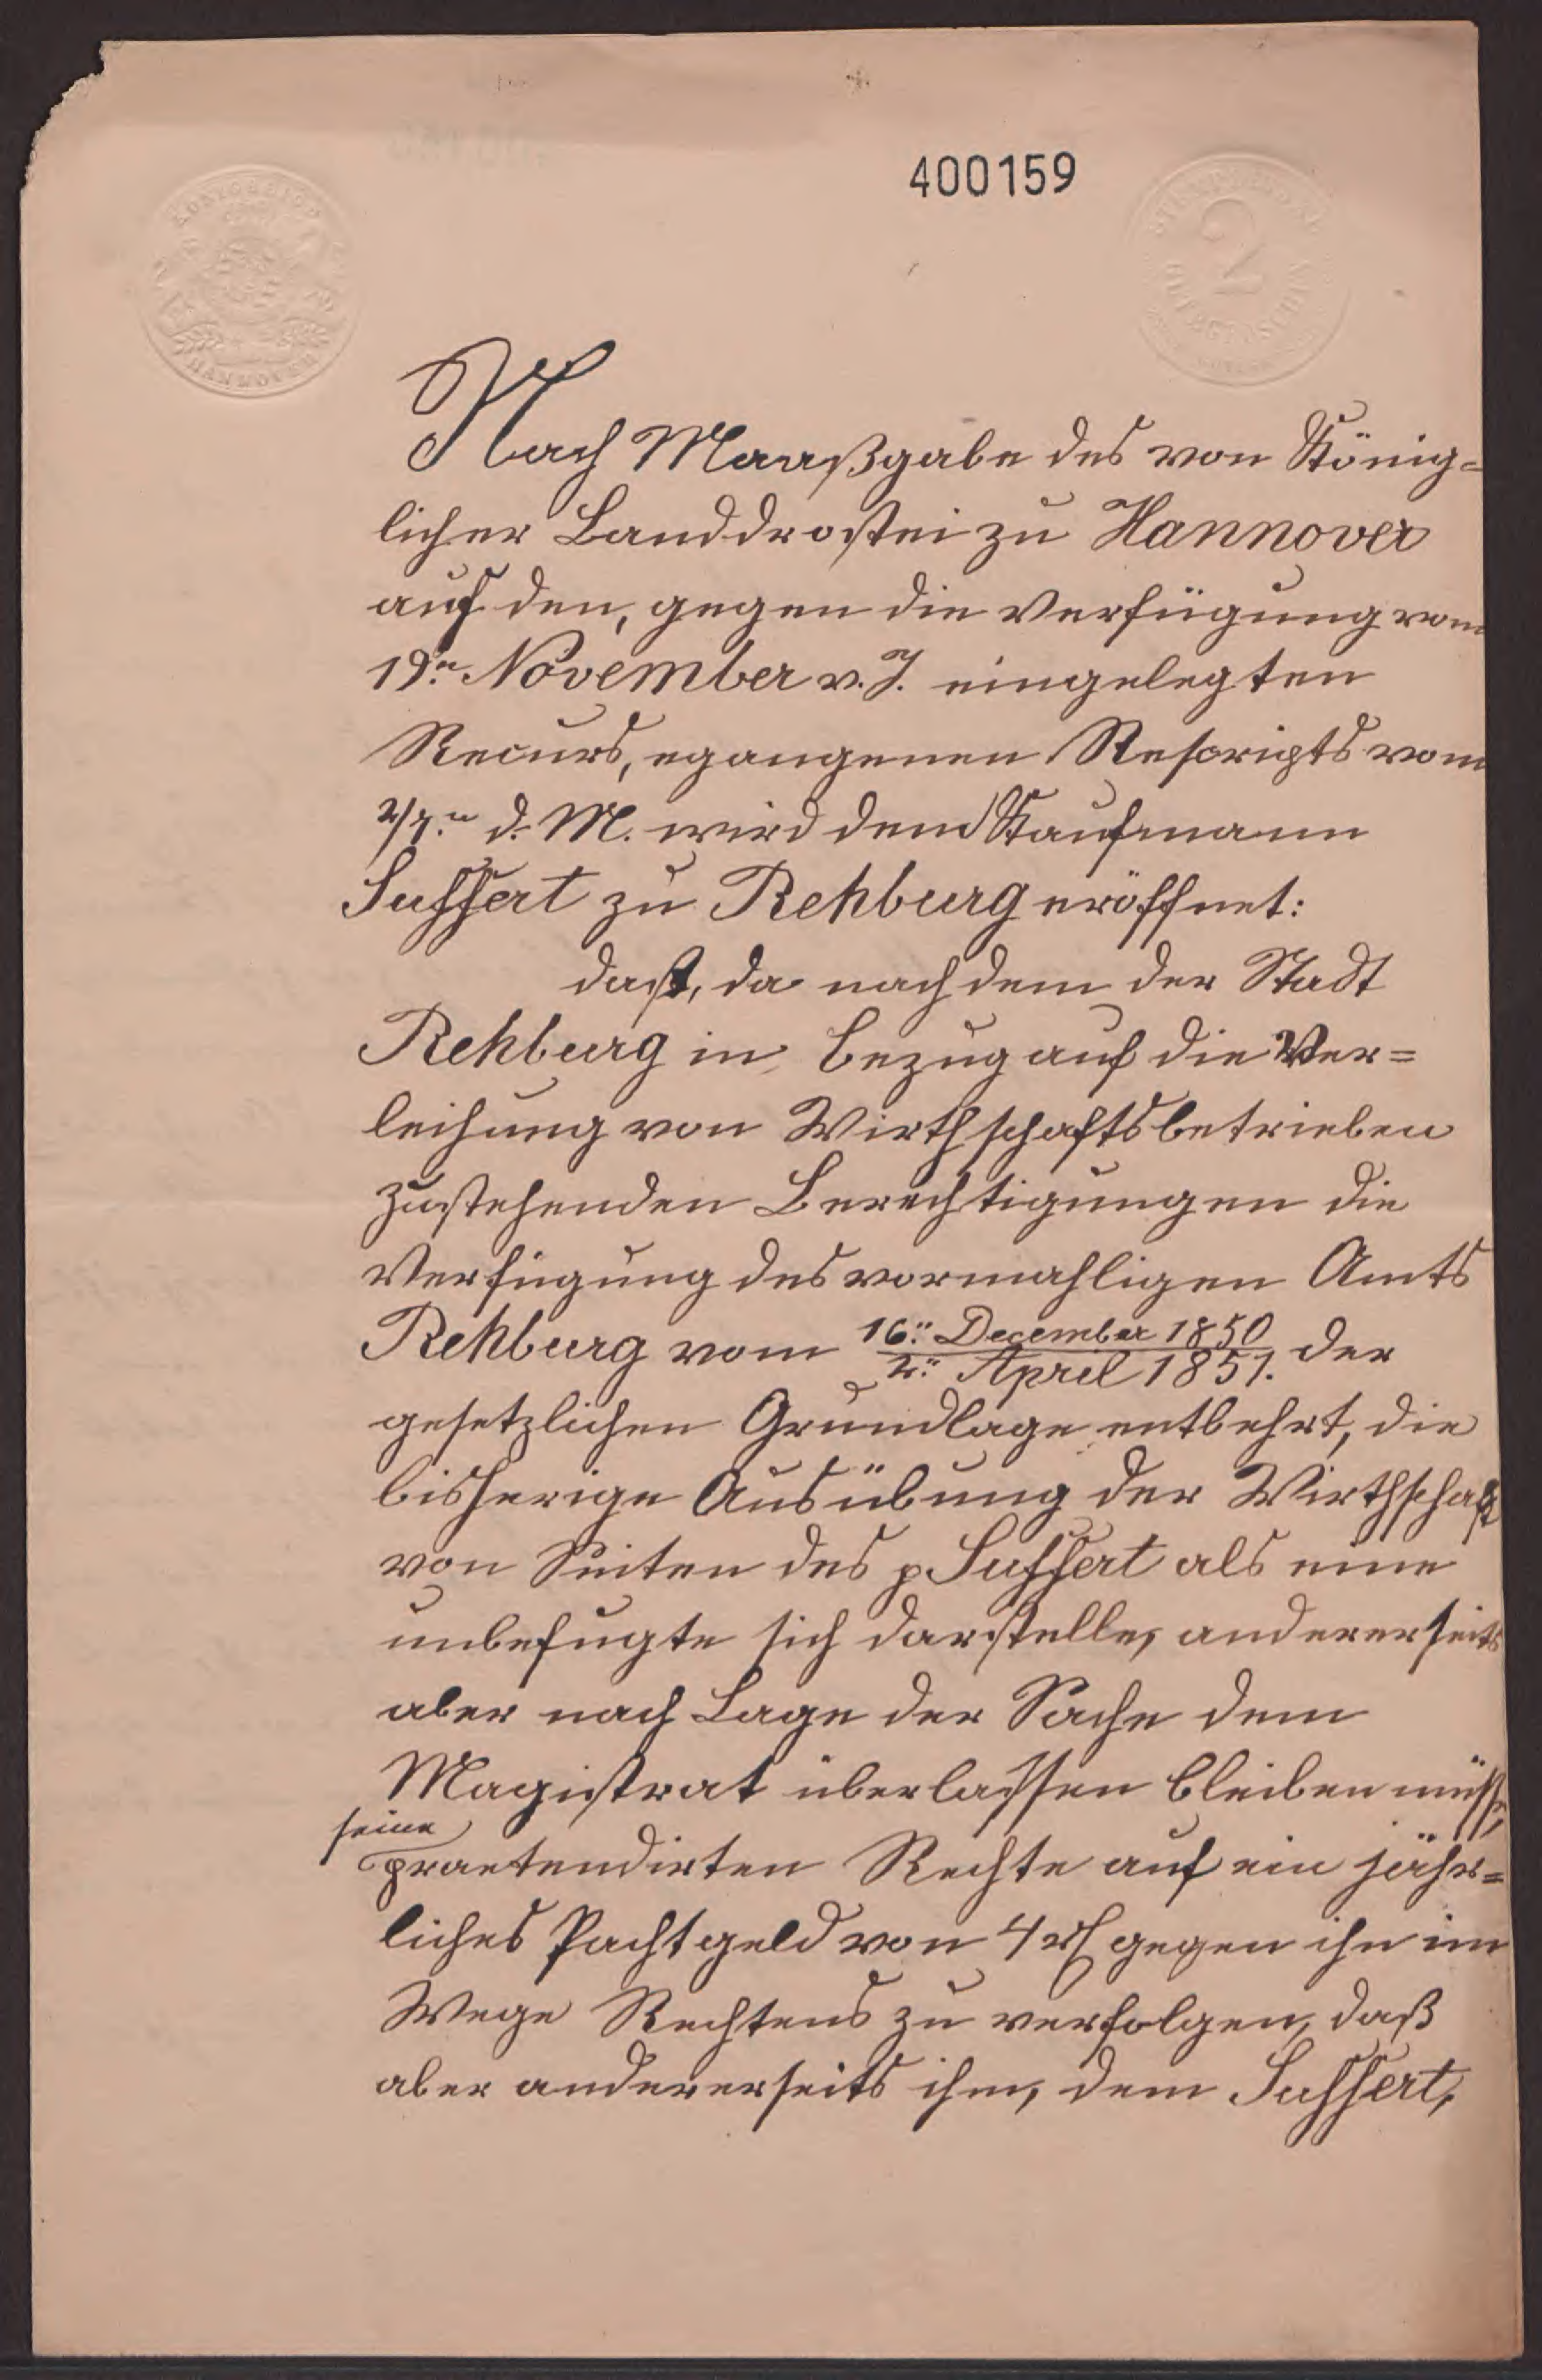 400159
KÖNIGREICH
HANNOVER
2
Nach Maaßgabe des von König=
licher Landdrostei zu Hannover
auf den, gegen die Verfügung vom
19ten November v. J. eingelegten
Recurs, egangenen Rescripts vom
2/7ten d. M. wird dem Kaufmann
Suffert zu Rehburg eröffnet:
daß, da nach dem der Stadt
Rehburg in Bezug auf die Ver=
leihung von Wirthschaftsbetrieben
zustehenden Berechtigungen die
Verfügung des vormahligen Amts
Rehburg vom 16ten December 1850 / 2ten April 1851. der
gesetzlichen Grundlage entbehrt, die
bisherige Ausübung der Wirthschaft
von Seiten des p. Suffert als eine
unbefugte sich darstelle, andererseits
aber nach Lage der Sache dem
Magistrat überlassen bleiben müsse,
seine
praetendirten Rechte auf ein jähr=
liches Pachtgeld von 4 rf gegen ihn im
Wege Rechtens zu verfolgen, daß
aber andererseits ihm, dem Suffert,